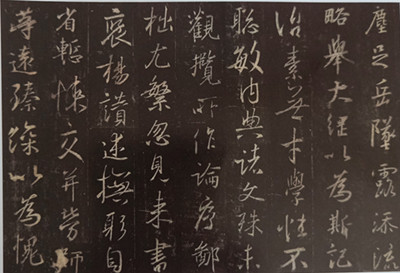 塵足岳墜露添流
略舉大綱以為斯記
治素無才學性不
聰敏內典諸文殊未
觀攬所作論序鄙
拙尤繁忽見来書
褒揚讚述撫躬自
省慙悚交并勞師
等遠臻深以為愧